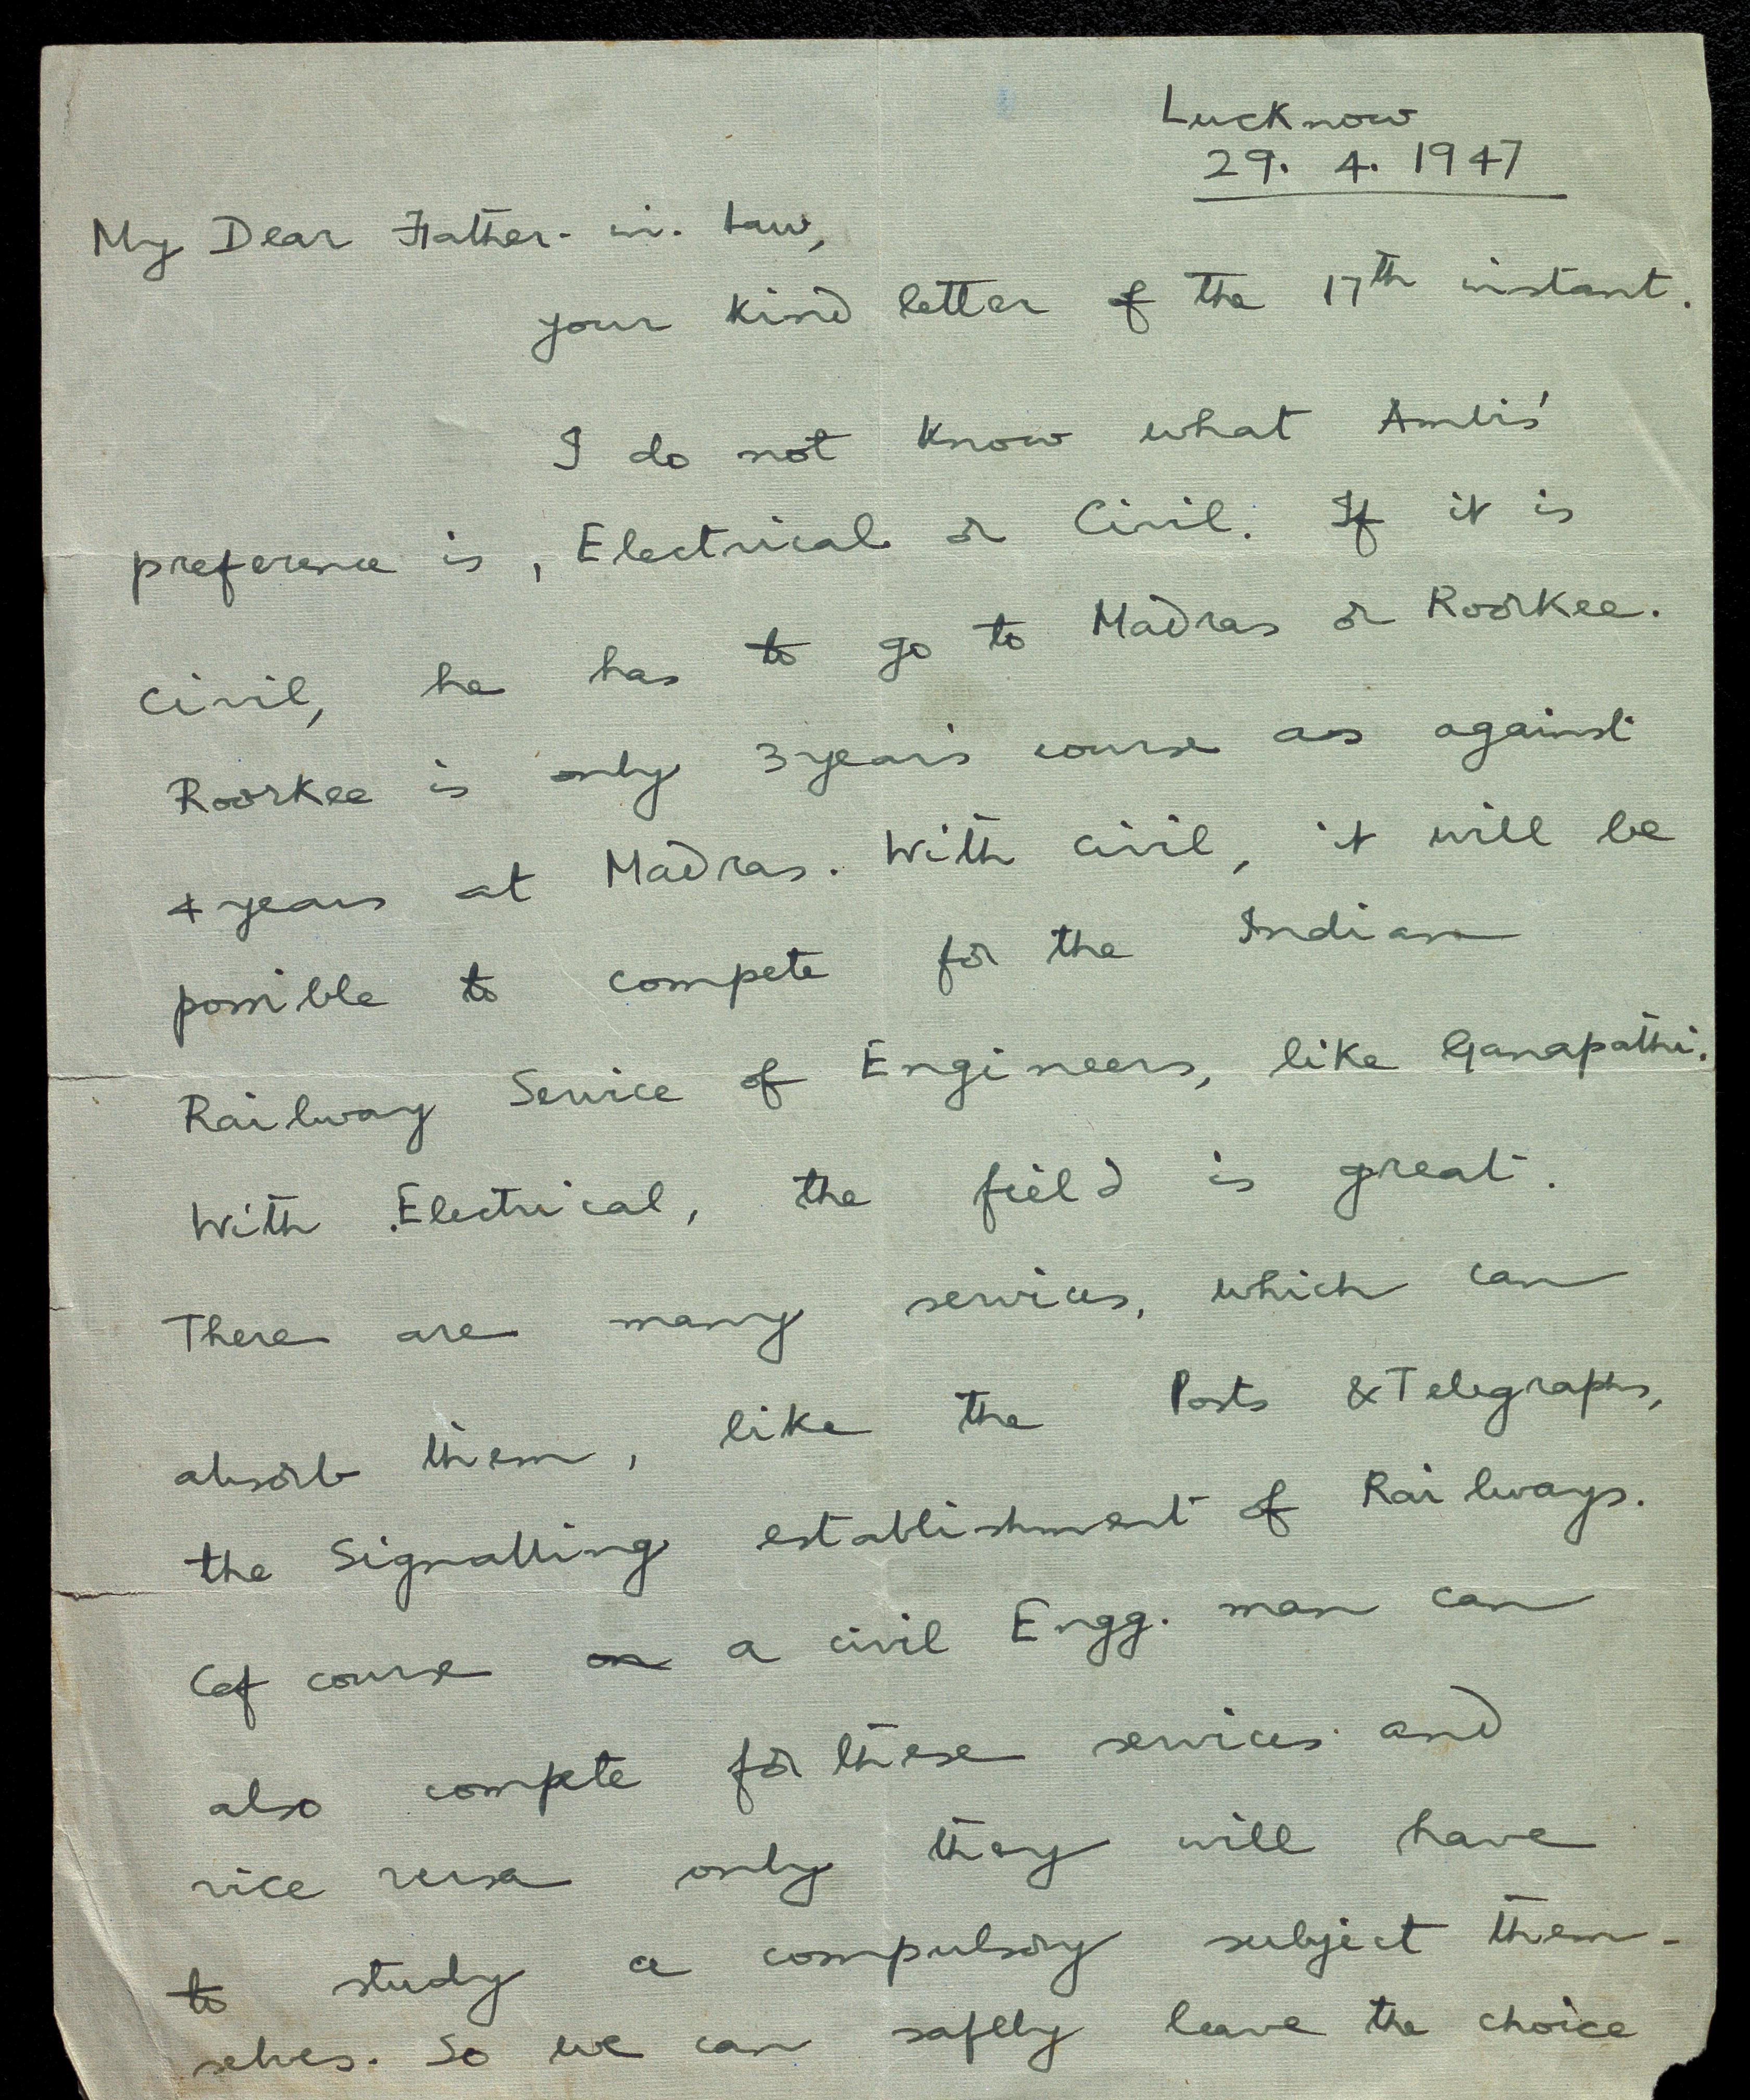 Lucknow
29. 4. 1947
My Dear Father-in-law,
your kind letter of the 17th instant.
I do not know what Ambis'
preference is, Electrical or Civil. If it is
civil, he has to go to Madras or Roorkee.
Roorkee is only 3 year's course as against
4 years at Madras. With civil, it will be
possible to compete for the Indian
Railway Service of Engineers, like Ganapathi.
With Electrical, the field is great.
There are many services, which can
absorb them, like the Posts & Telegraphs,
the Signalling establishment of Railways.
(of course a civil Engg. man can
also compete for these services and
vice versa only they will have
to study a compulsory subject them-
selves. So we can saftly leave the choice